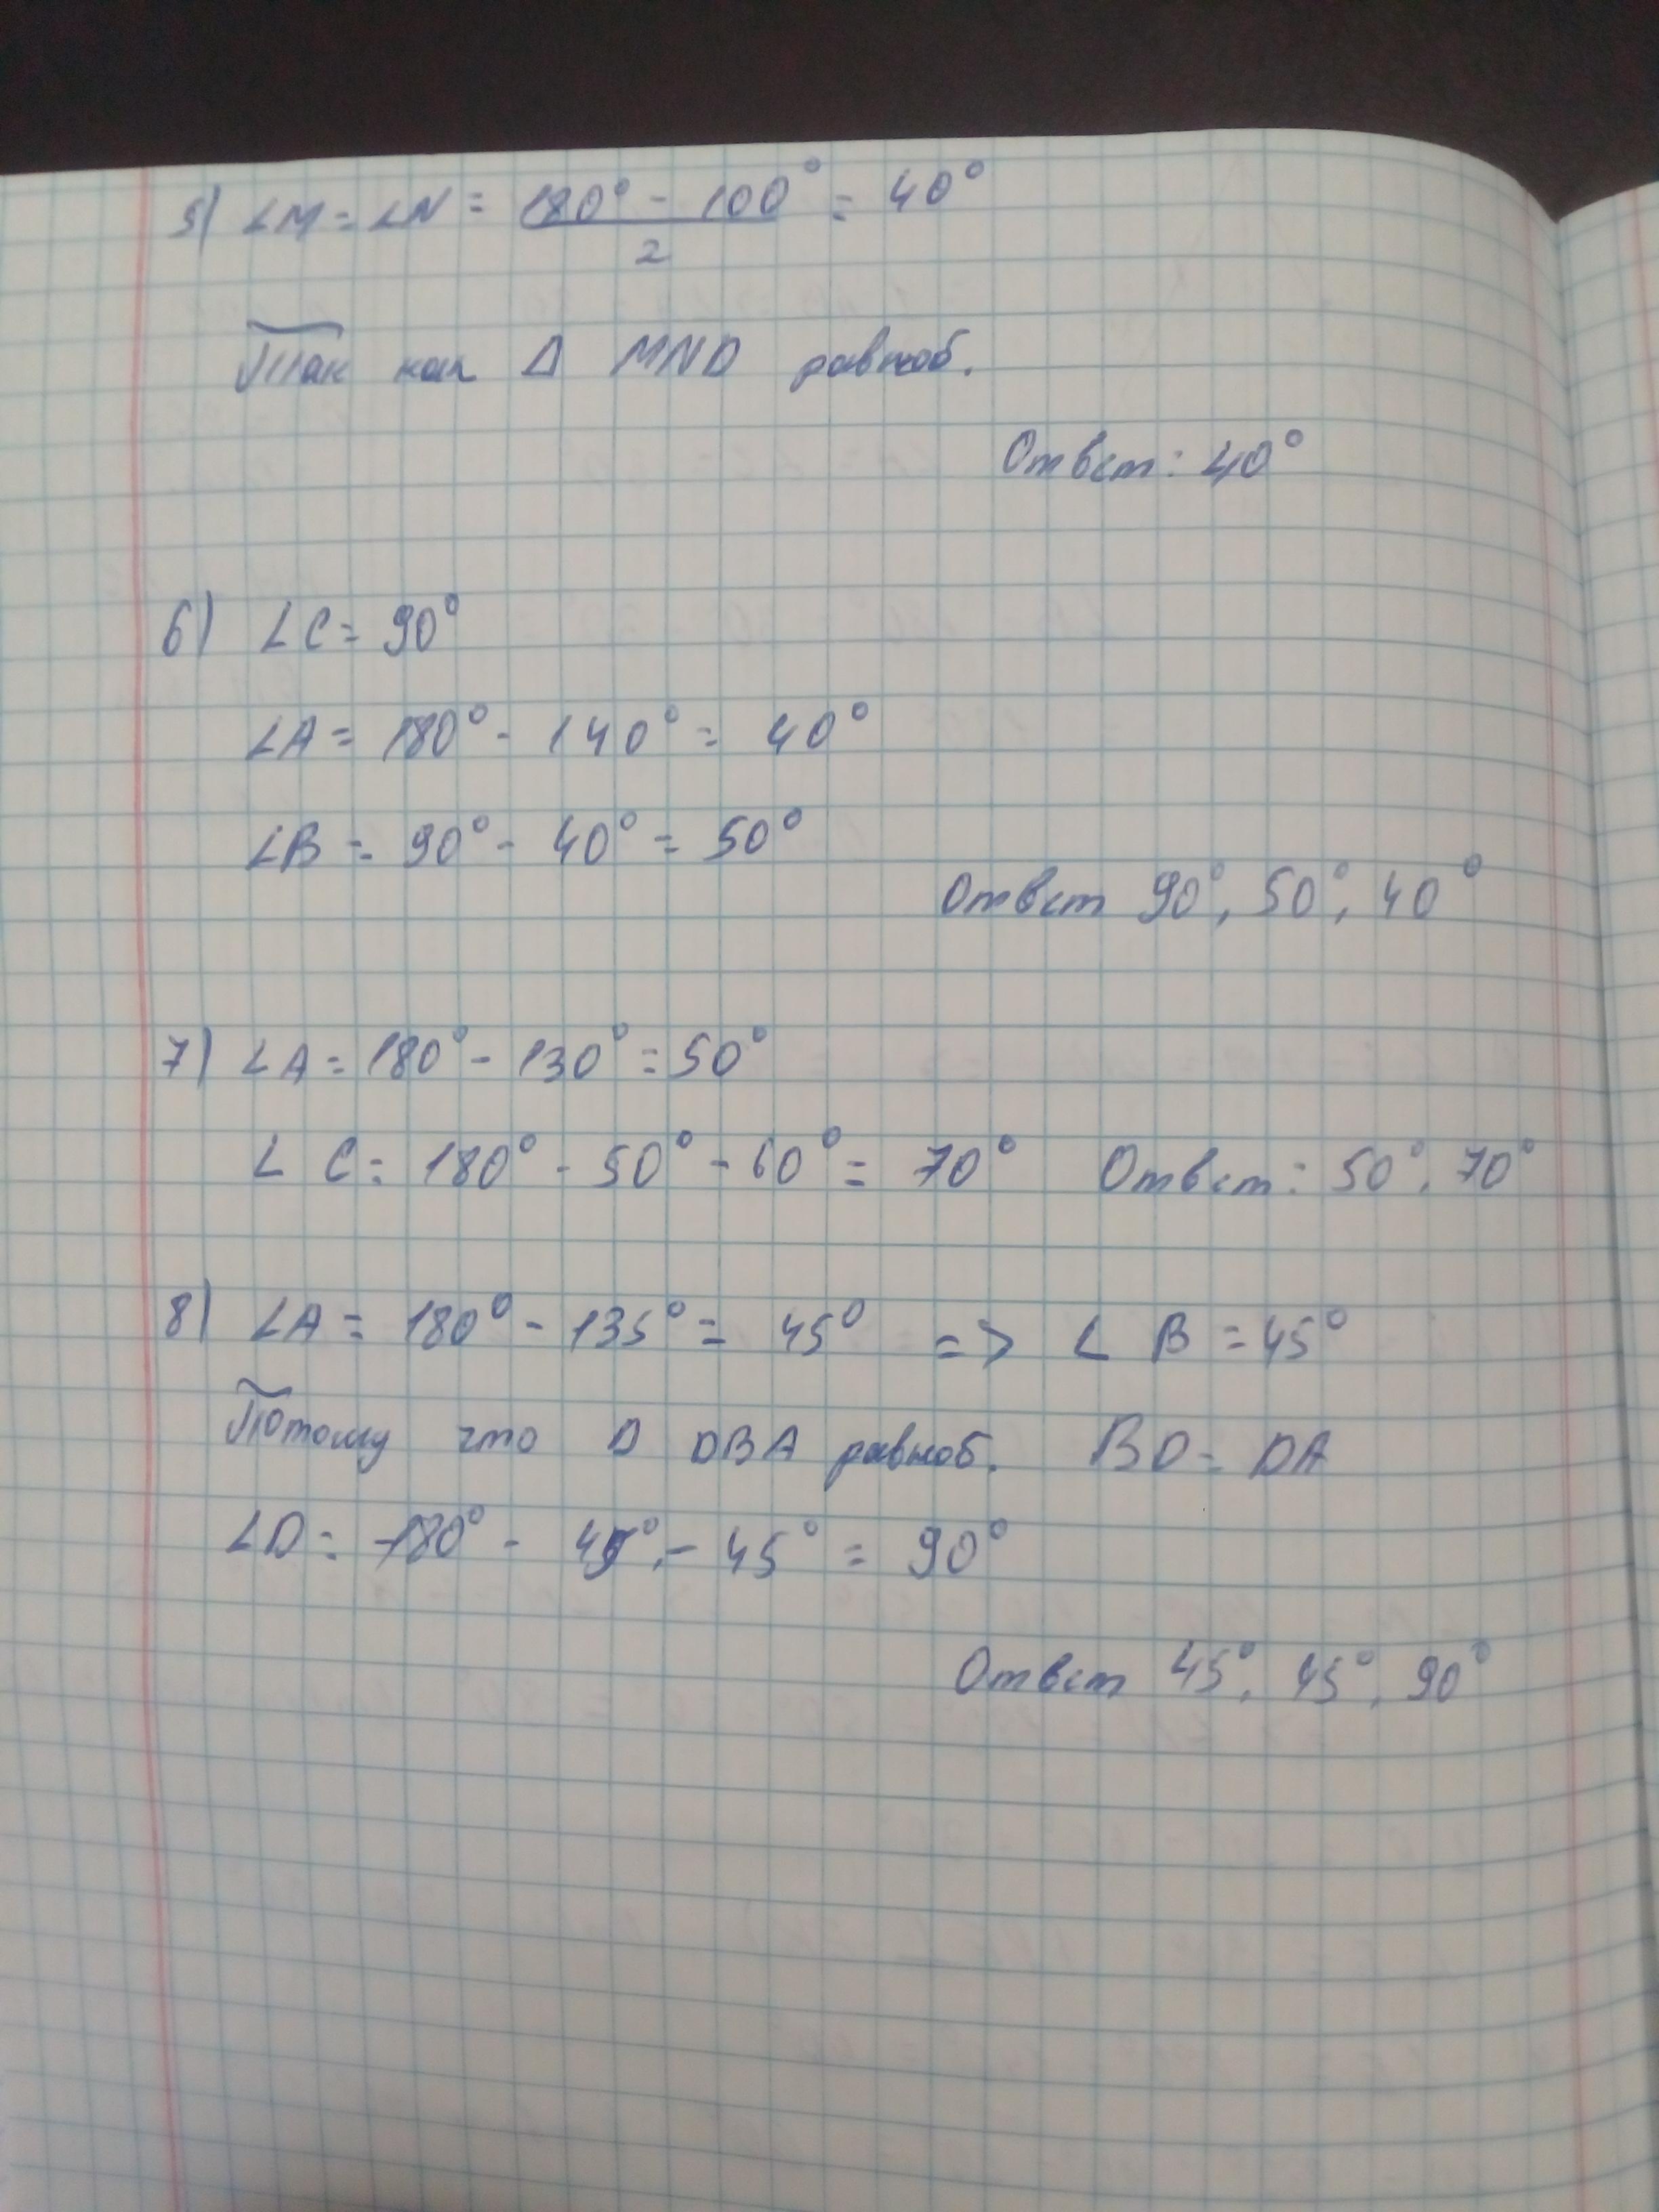 5) ∠M = ∠N = (180° - 100°)/2 = 40°
Так как Δ MND равноб.
Ответ: 40°
6) ∠C = 90°
∠A = 180° - 140° = 40°
∠B = 90° - 40° = 50°
Ответ 90°, 50°, 40°
7) ∠A = 180° - 130° = 50°
∠C = 180° - 50° - 60° = 70° Ответ: 50°, 70°
8) ∠A = 180° - 135° = 45° => ∠B = 45°
Потому что Δ DBA равноб. BD = DA
∠D = 180° - 45° - 45° = 90°
Ответ 45°, 45°, 90°